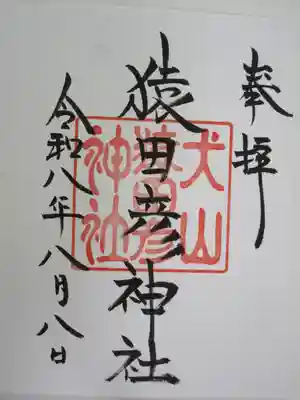 奉拝
猿田彦神社
犬山
猿田彦
神社
令和八年八月八日